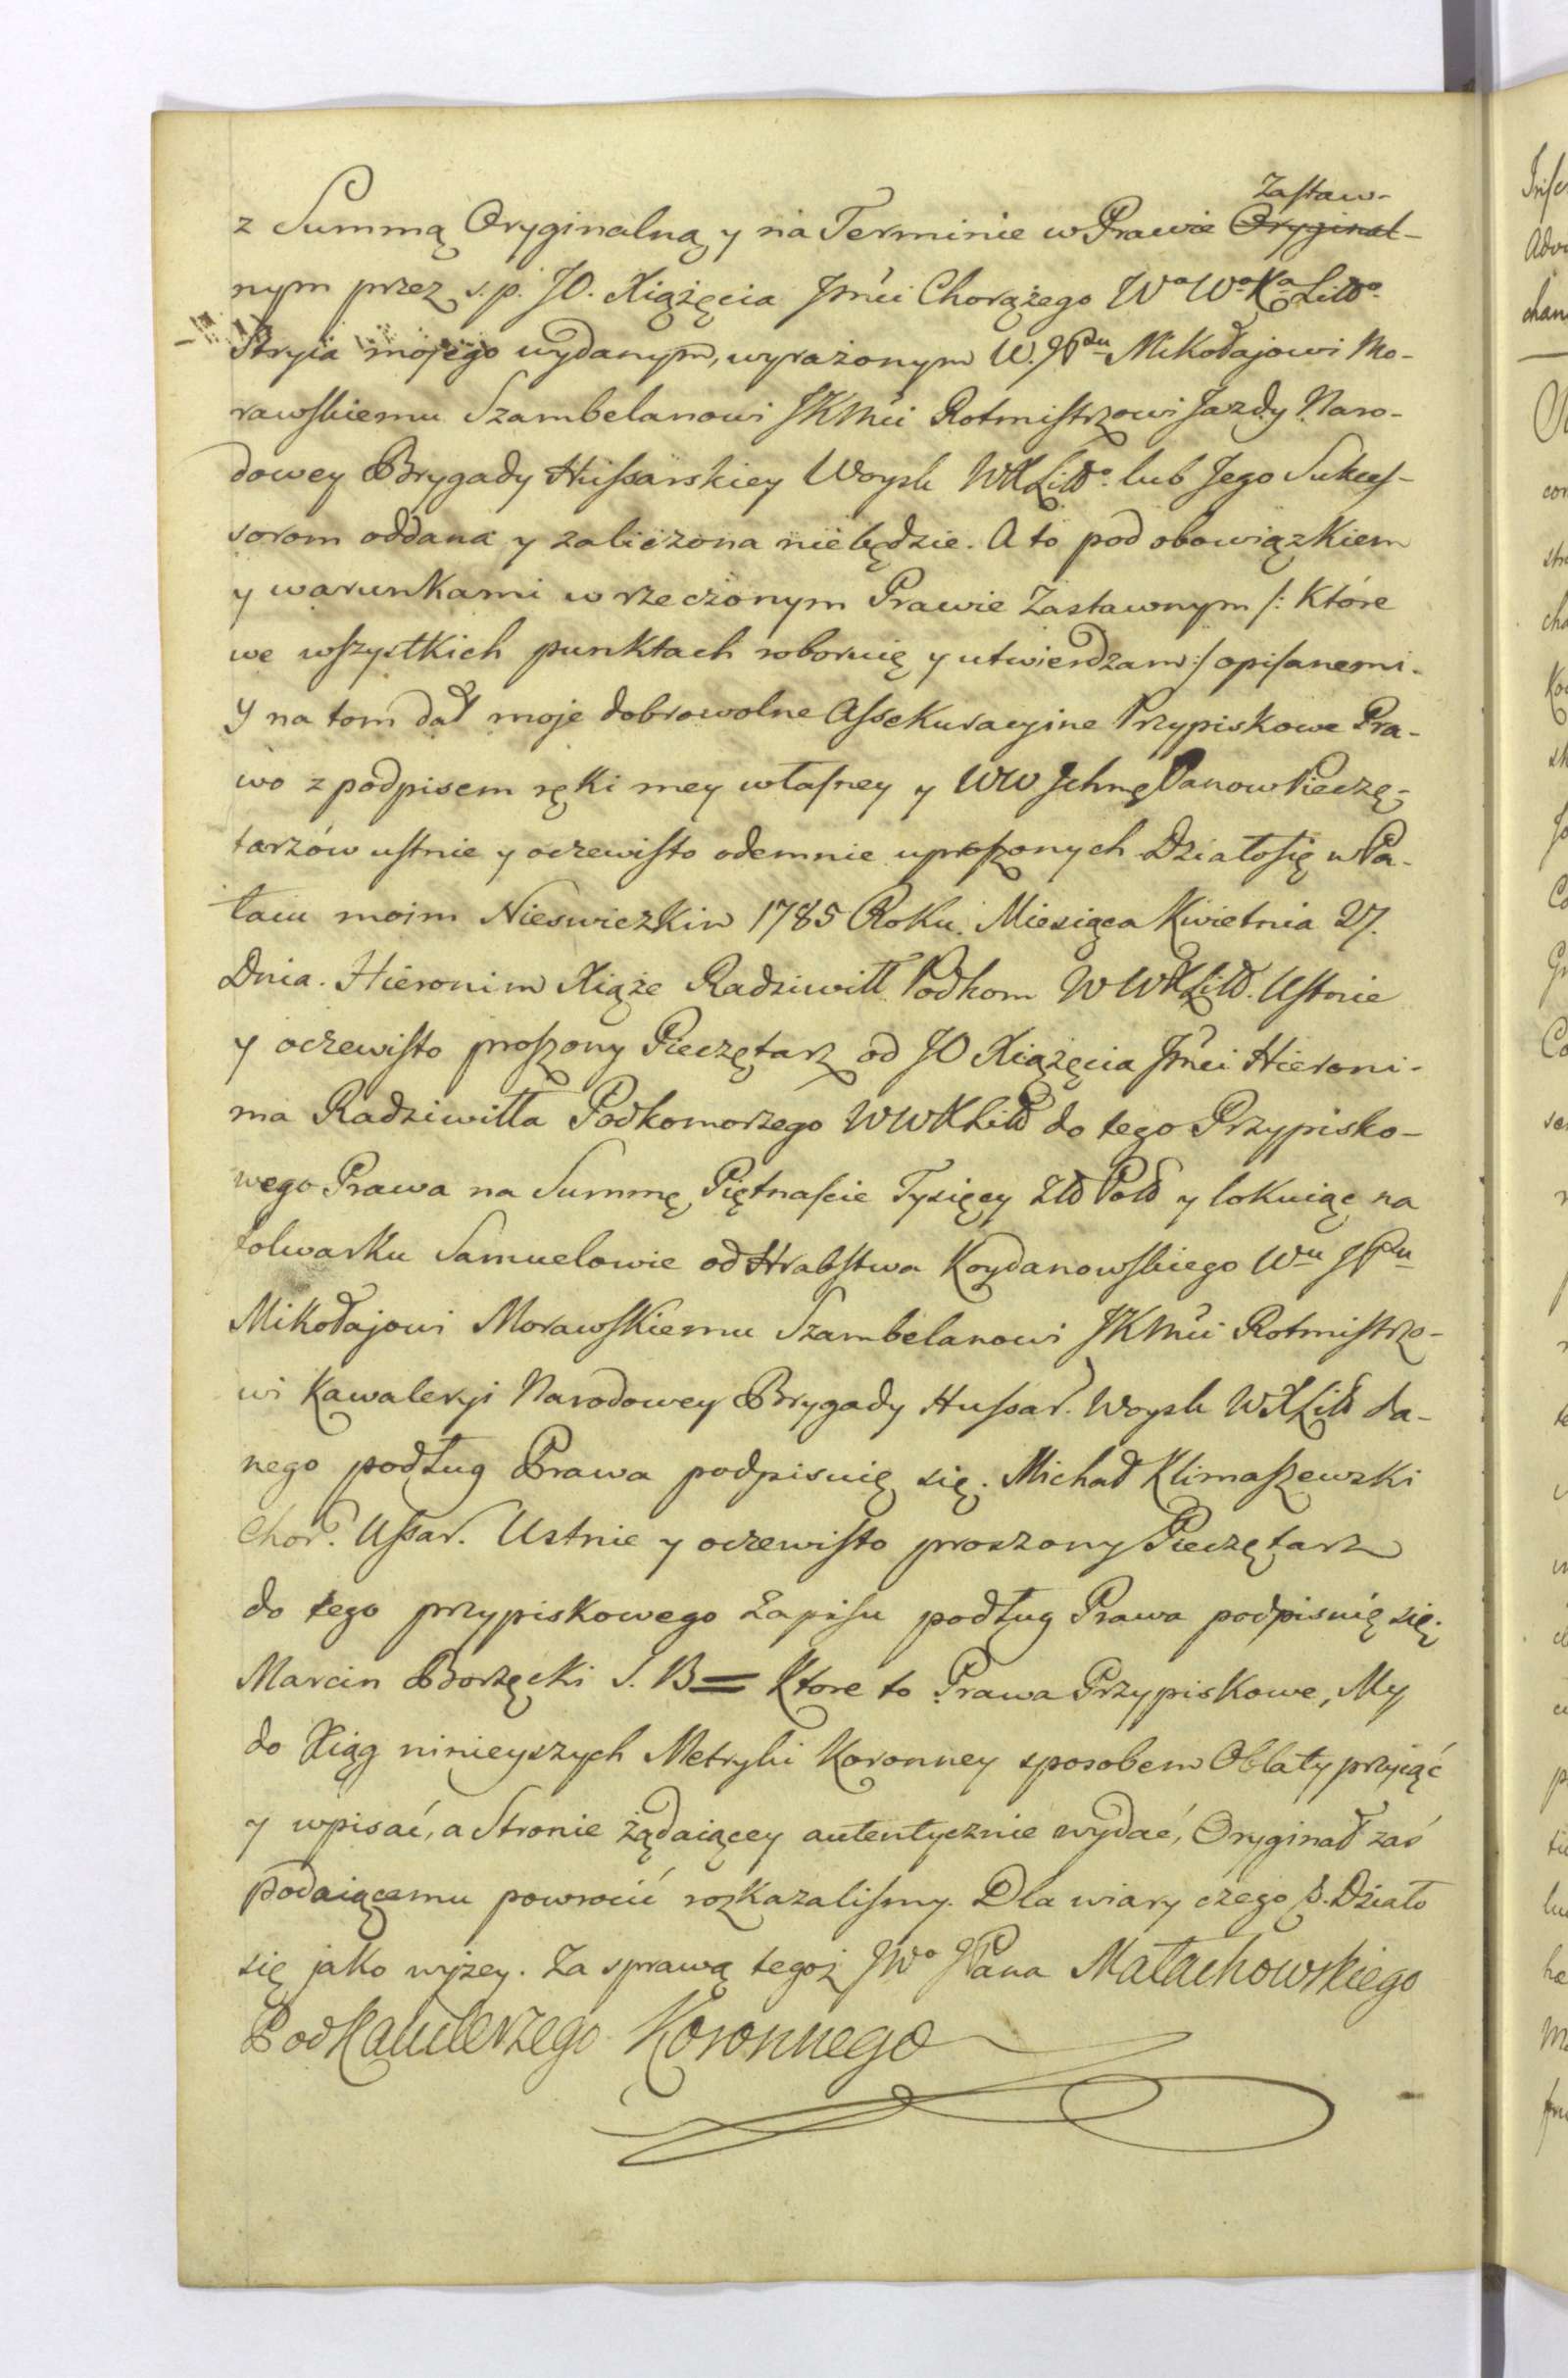 Zastaw-
z Summą Oryginalną y na Terminie w Prawie Oryginal-
nym przez s. p. JO. Xiążęcia Jmći Chorążego Wo Wo Ko Litto
Stryia mojego wydanym, wyrażonym W. JPnu Mikołajowi Mo-
rawskiemu Szambelanowi JKMći Rotmistrzowi Jazdy Naro-
dowey Brygady Hussarskiey Woysk WXLitto. lub Jego Sukces-
sorom oddana y zaliczona niebędzie. A to pod obowiązkiem
y warunkami w rzeczonym Prawie Zastawnym /: Które
we wszystkich punktach roboruię y utwierdzam :/ opisanemi.
Y na tom dał moje dobrowolne Assekuracyine Przypiskowe Pra-
wo z podpisem ręki mey własney y WW Jchmę Panow Pieczę-
tarzów ustnie y oczewisto odemnie uproszonych Działo się w Pa-
łacu moim Nieswiezkim 1785 Roku. Miesiąca Kwietnia 27.
Dnia. Hieronim Xiąże Radziwiłł Podkom W WXLitt. Ustnie
y oczewisto proszony Pieczętarz od JO Xiążęcia Jmći Hieroni-
ma Radziwiłła Podkomorzego WWXLitt do tego Przypisko-
wego Prawa na Summę Piętnaście Tysięcy Złł Poll y lokuiąc na
folwarku Samuelowie od Hrabstwa Koydanowskiego Wu JPnu
Mikołajowi Morawskiemu Szambelanowi JKMći Rotmistrzo-
wi Kawaleryi Narodowey Brygady Hussar. Woysk WXLitt da-
nego podług Prawa podpisuię się. Michał Klimaszewski
Chor. Ussar. Ustnie y oczewisto proszony Pieczętarz
do tego przypiskowego Zapisu podług Prawa podpisuię się.
Marcin Borzęcki S. B = Ktore to Prawa Przypiskowe, My
do Xiąg ninieyszych Metryki Koronney sposobem Oblaty przyiąć
y wpisać, a Stronie żądaiącey autentycznie wydać, Oryginał zaś
podaiącemu powrocić rozkazalismy. Dla wiary czego &. Działo
się jako wyżey. Za sprawą tegoż JWo JPana Małachowskiego
Podkanclerzego Koronnego